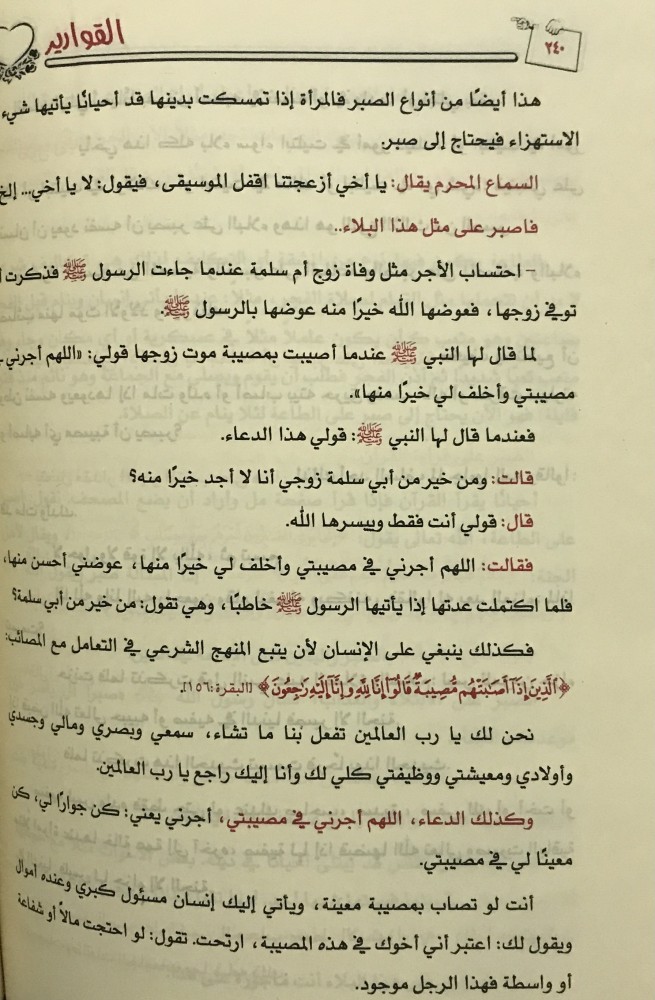 القوارير
٢٤٠
هذا أيضًا من أنواع الصبر فالمرأة إذا تمسكت بدينها قد أحيانًا يأتيها شيء
الاستهزاء فيحتاج إلى صبر.
السماع المحرم يقال: يا أخي أزعجتنا اقفل الموسيقى، فيقول: لا يا أخي... إلخ
فاصبر على مثل هذا البلاء..
- احتساب الأجر مثل وفاة زوج أم سلمة عندما جاءت الرسول ﷺ فذكرت
توفي زوجها، فعوضها الله خيرًا منه عوضها بالرسول ﷺ.
لما قال لها النبي ﷺ عندما أصيبت بمصيبة موت زوجها قولي: «اللهم أجرني
مصيبتي وأخلف لي خيرًا منها».
فعندما قال لها النبي ﷺ: قولي هذا الدعاء.
قالت: ومن خير من أبي سلمة زوجي أنا لا أجد خيرًا منه؟
قال: قولي أنت فقط وييسرها الله.
فقالت: اللهم أجرني في مصيبتي وأخلف لي خيرًا منها، عوضني أحسن منها،
فلما اكتملت عدتها إذا يأتيها الرسول ﷺ خاطبًا، وهي تقول: من خير من أبي سلمة؟
فكذلك ينبغي على الإنسان لأن يتبع المنهج الشرعي في التعامل مع المصائب:
﴿الَّذِينَ إِذَا أَصَابَتْهُم مُّصِيبَةٌ قَالُوا إِنَّا لِلَّهِ وَإِنَّا إِلَيْهِ رَاجِعُونَ﴾ [البقرة: ١٥٦].
نحن لك يا رب العالمين تفعل بنا ما تشاء، سمعي وبصري ومالي وجسدي
وأولادي ومعيشتي ووظيفتي كلي لك وأنا إليك راجع يا رب العالمين.
وكذلك الدعاء، اللهم أجرني في مصيبتي، أجرني يعني: كن جوارًا لي، كن
معينًا لي في مصيبتي.
أنت لو تصاب بمصيبة معينة، ويأتي إليك إنسان مسئول كبري وعنده أموال
ويقول لك: اعتبر أني أخوك في هذه المصيبة، ارتحت. تقول: لو احتجت مالاً أو شفاعة
أو واسطة فهذا الرجل موجود.